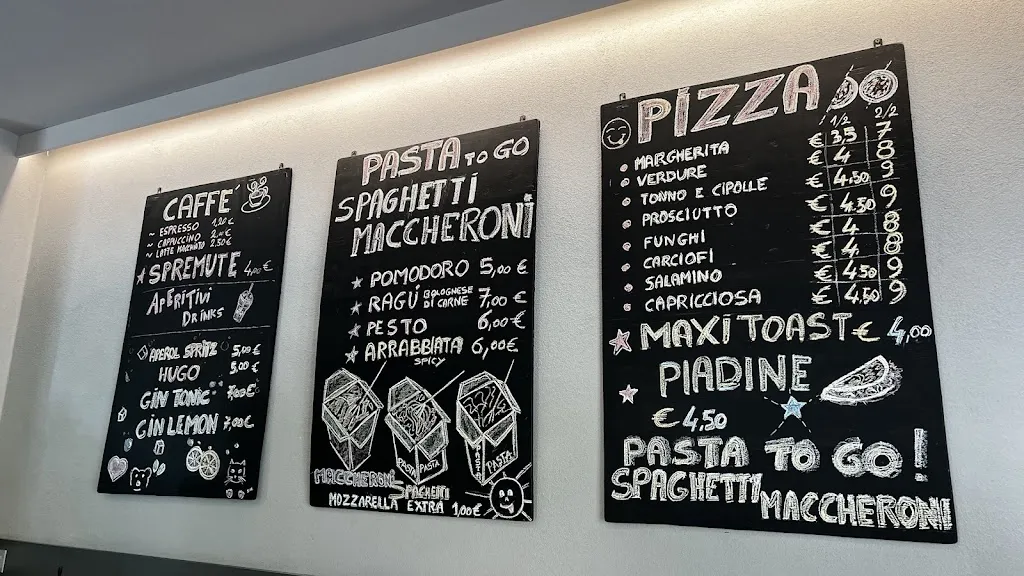 CAFFÉ
~ ESPRESSO 1,20 €
~ CAPPUCCINO 2,00 €
~ LATTE MACCHIATO 2.50 €
SPREMUTE 4,00 €
APERITIVI
DRINKS
APEROL SPRITZ 5,00 €
HUGO 5,00 €
GIN TONIC 7,00 €
GIN LEMON 7,00 €
PASTA TO GO
SPAGHETTI
MACCHERONI
POMODORO 5,00 €
RAGÚ BOLOGNESE DI CARNE 7,00 €
PESTO 6,00 €
ARRABBIATA 6,00 €
SPICY
PASTA PASTA PASTA
MACCHERONI SPAGHETTI
MOZZARELLA EXTRA 1,00 €
PIZZA
1/2 2/2
MARGHERITA € 3,5 7
VERDURE € 4 8
TONNO E CIPOLLE € 4,50 9
PROSCIUTTO € 4.50 9
FUNGHI € 4 8
CARCIOFI € 4 8
SALAMINO € 4.50 9
CAPRICCIOSA € 4.50 9
MAXI TOAST € 4,00
PIADINE
€ 4,50
PASTA TO GO!
SPAGHETTI MACCHERONI